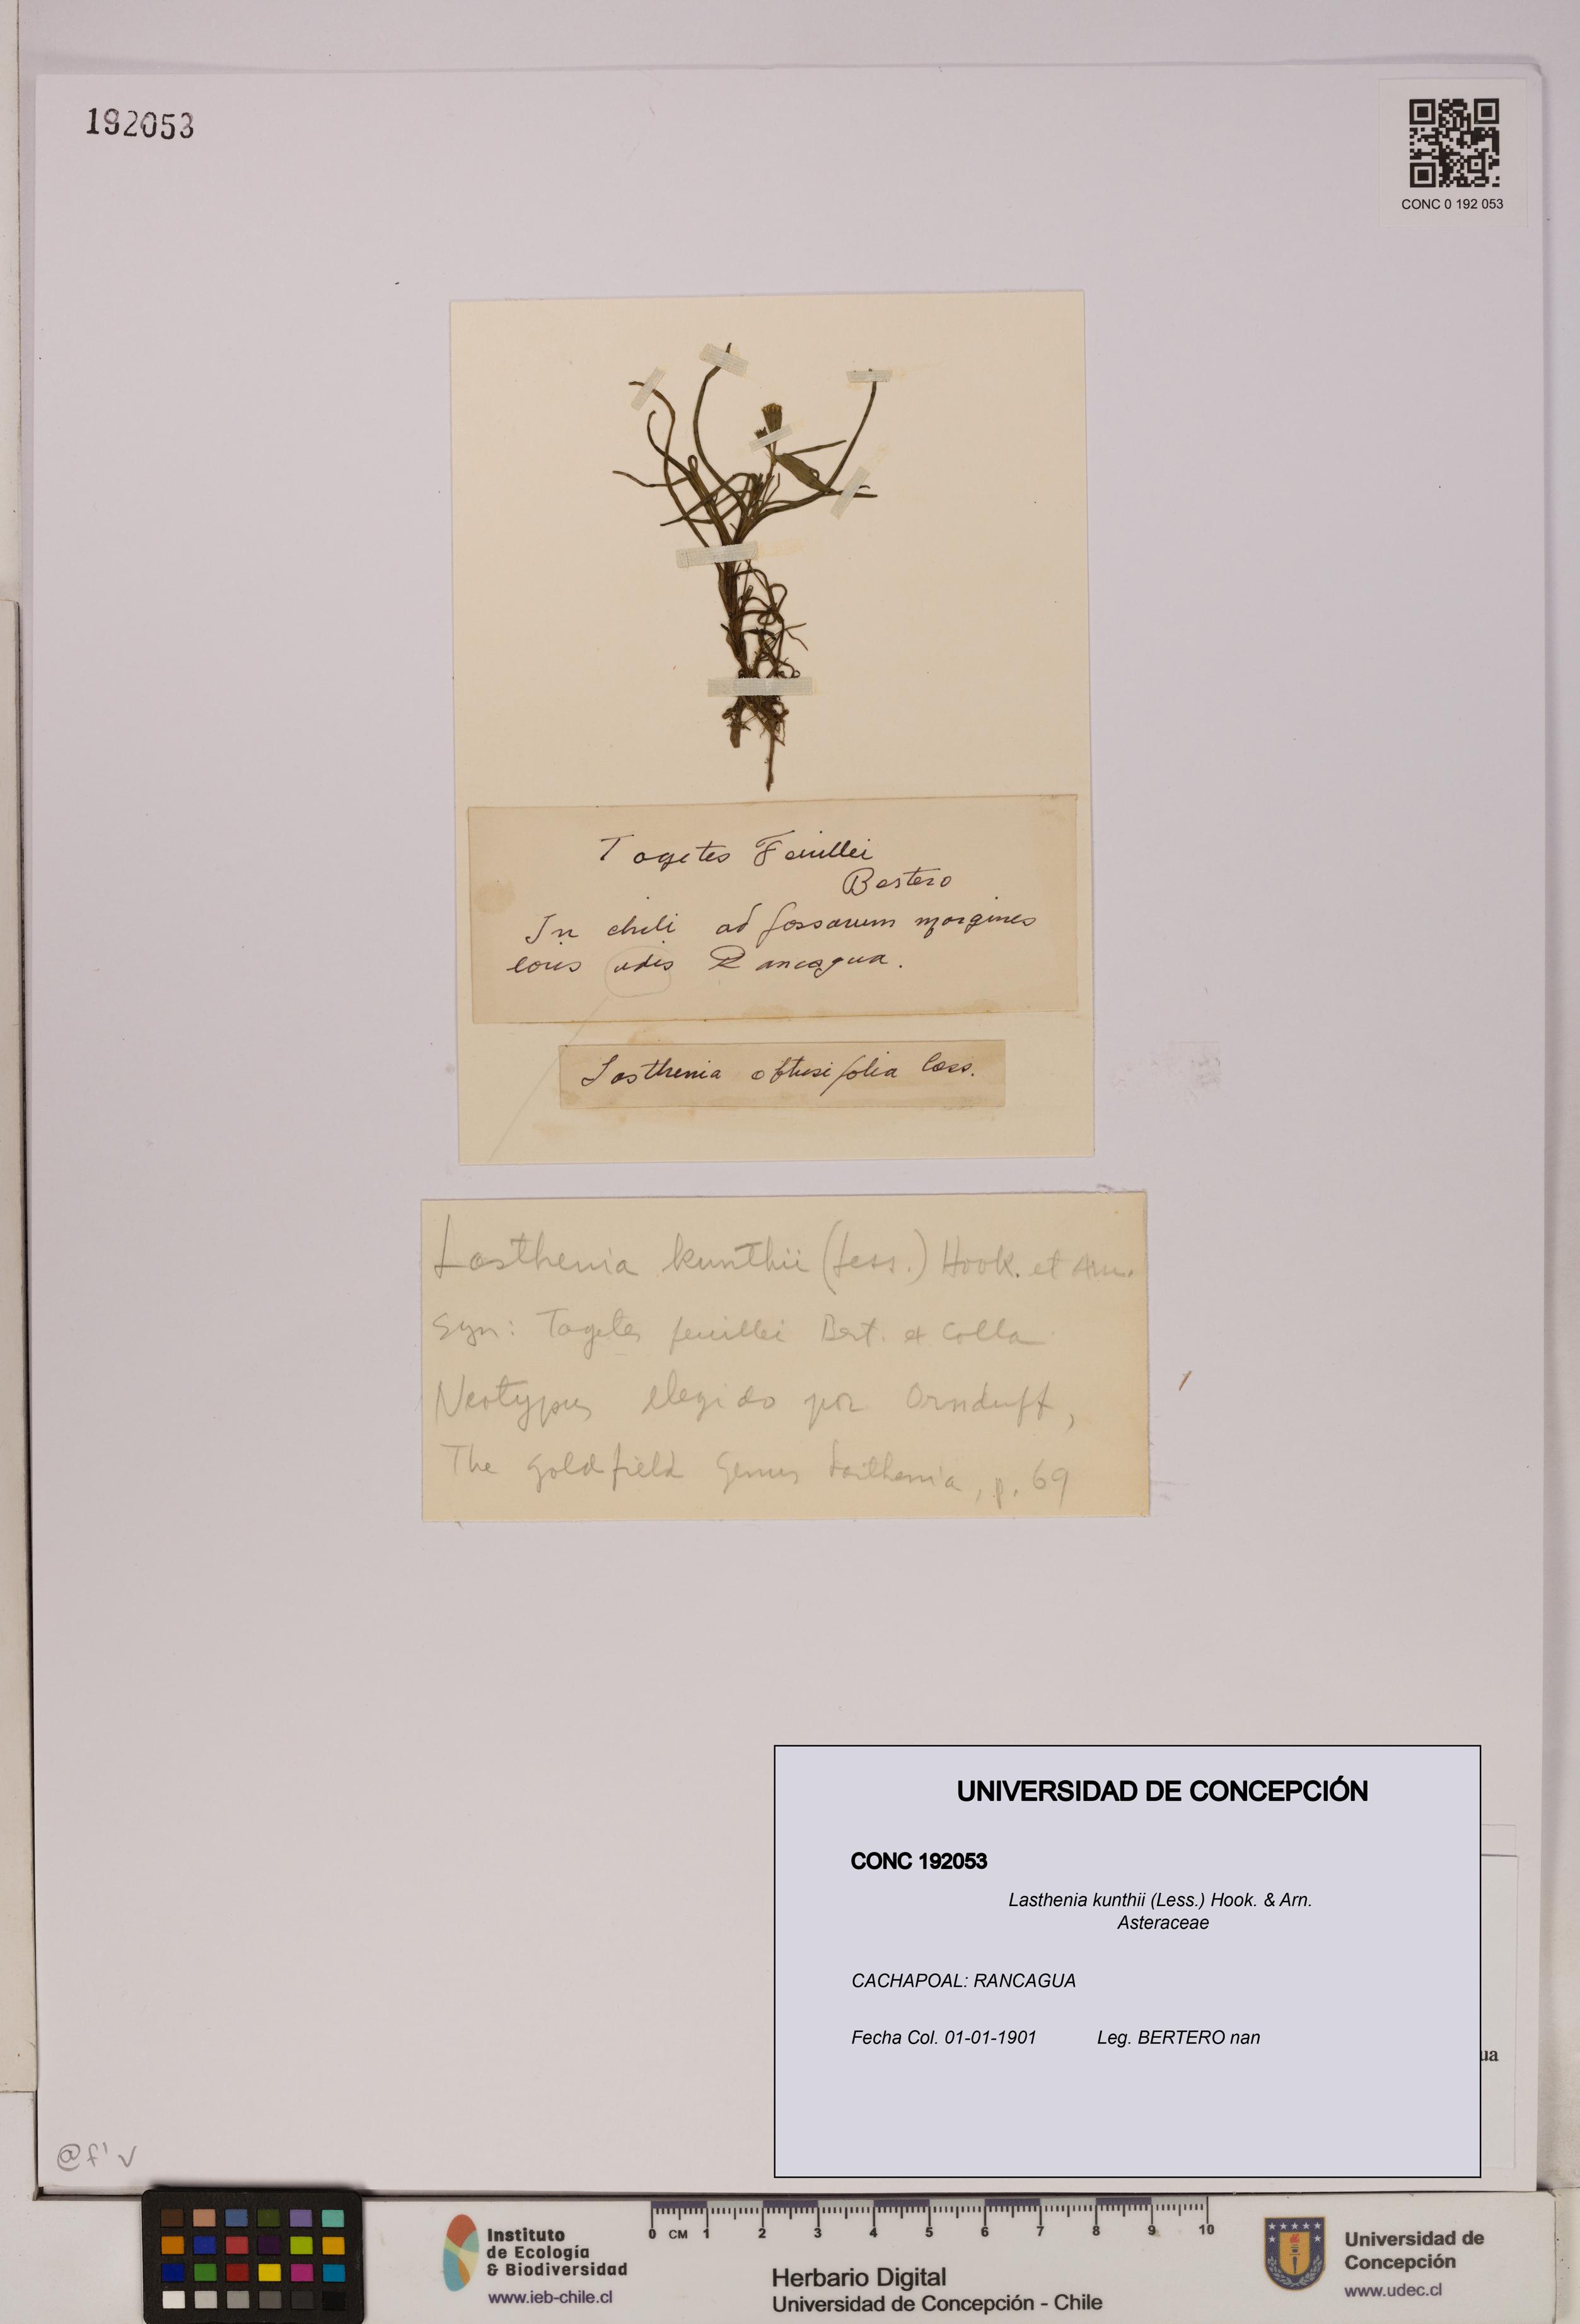 192053
CONC 0 192 053
Tagetes Feuillei
Bertero
In chili ad fossarum margines
locis udis Rancagua.
Lasthenia obtusifolia Cass.
Lasthenia kunthii (Less.) Hook. et Arn.
Syn: Tagetes feuillei Bert. et Colla
Neotypus elegido por Ornduff,
The goldfield Genus Lasthenia, p. 69
UNIVERSIDAD DE CONCEPCIÓN
CONC 192053
Lasthenia kunthii (Less.) Hook. & Arn.
Asteraceae
CACHAPOAL: RANCAGUA
Fecha Col. 01-01-1901 Leg. BERTERO nan
ua
Instituto
de Ecología
& Biodiversidad
www.ieb-chile.cl
0 CM 1 2 3 4 5 6 7 8 9 10
Herbario Digital
Universidad de Concepción - Chile
Universidad de
Concepción
www.udec.cl